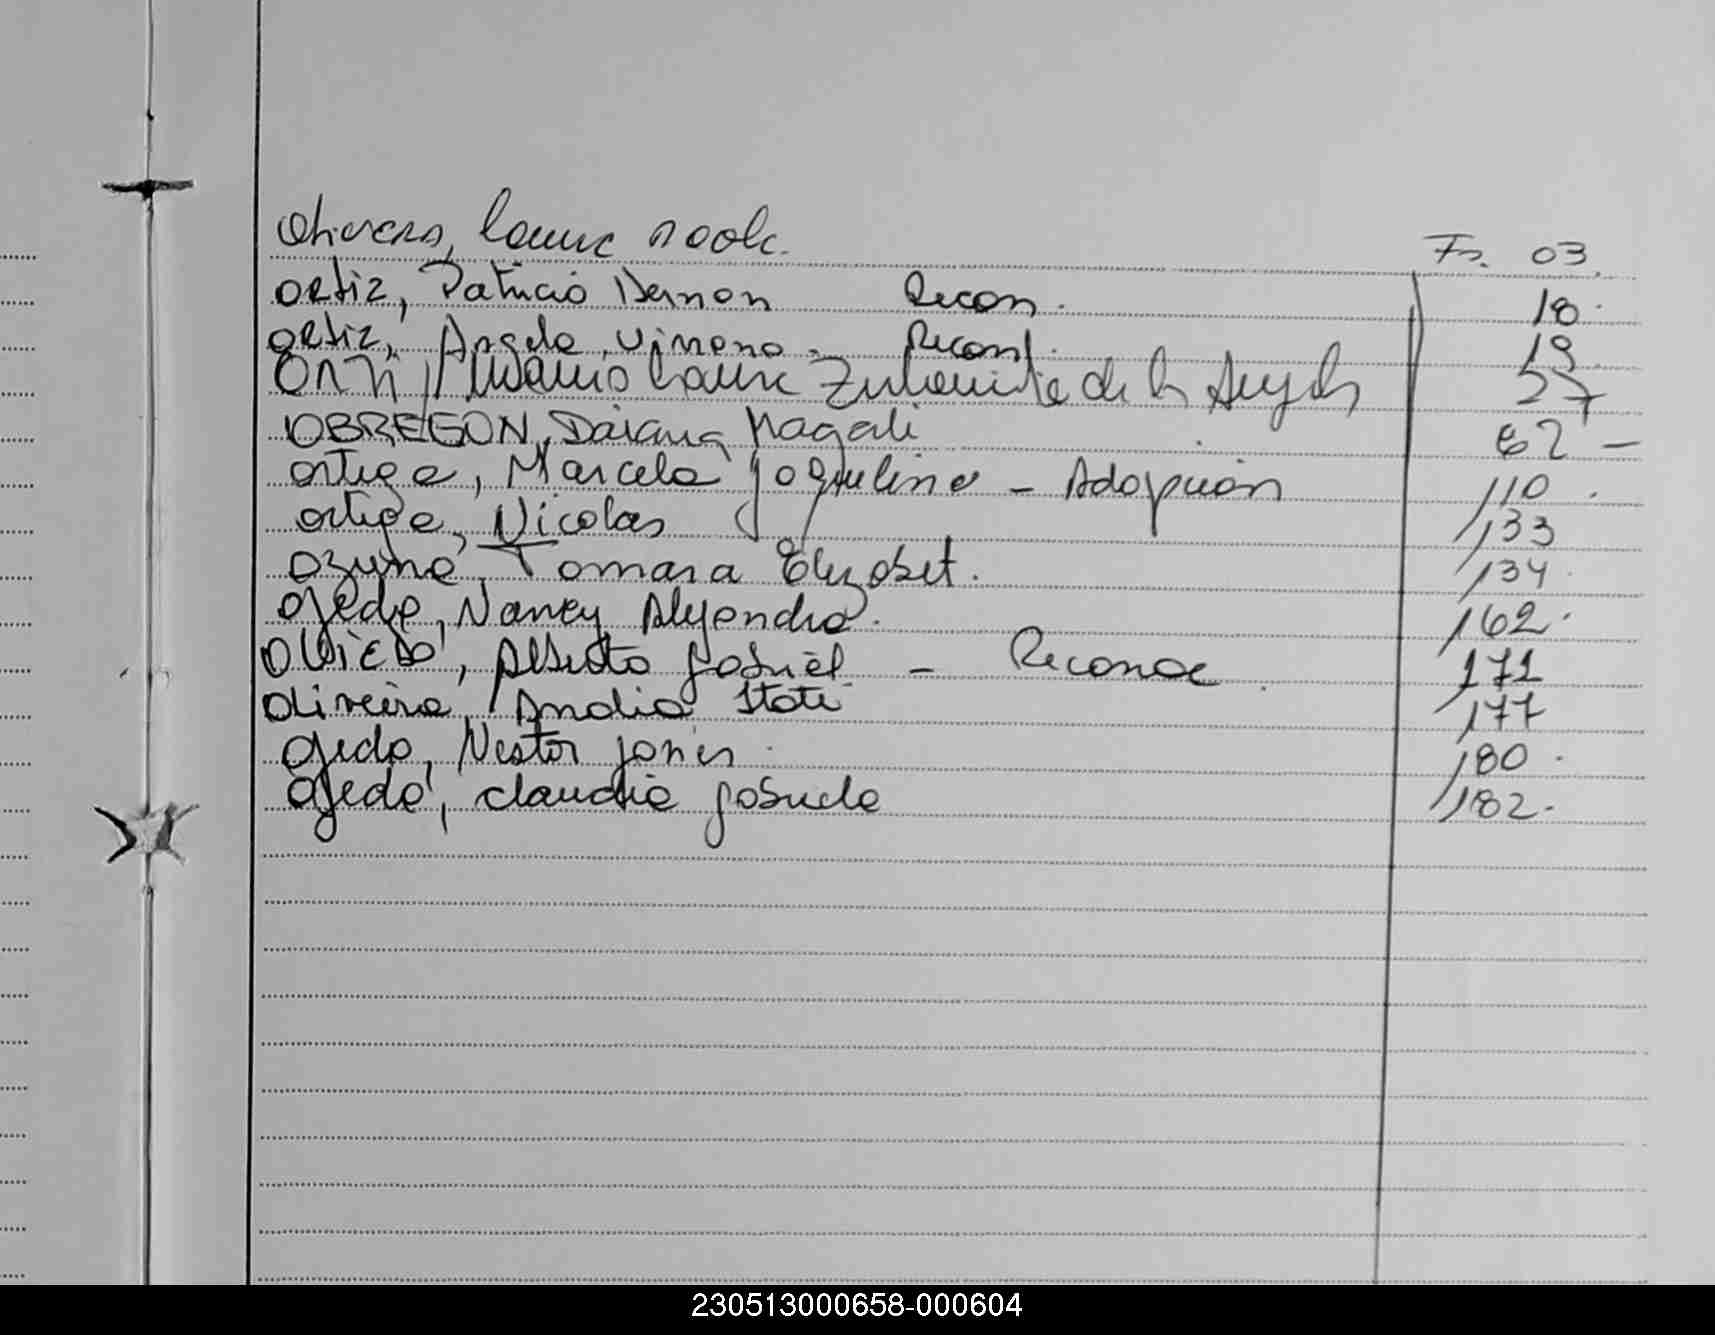 Olivera, Laura Fs. 03.
Ortiz, Patricio Hernan Recon. 18.
Ortiz, Angela Recon. 19.
de los Angeles 27
OBREGON, Daiana Magali 62 -
Ortega, Marcela Joquelina - Adopcion 110.
Ortega, Nicolas 133
Ozuna, Tamara Elizabet. 134.
Ojeda, Nancy Alejandra. 162.
Oviedo, Alberto Gabriel - Reconoc. 171
Oliveira, Analia Itati 177
Ojeda, Nestor Javier. 180.
Ojeda, Claudia Gabriela 182.
230513000658-000604